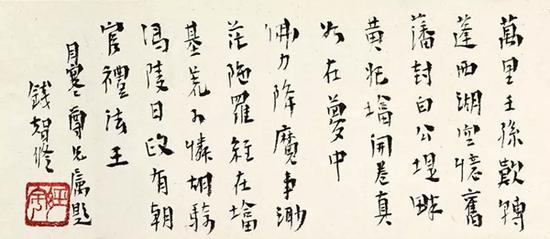 萬里王孫歎轉
蓬西湖空憶舊
藩封白公堤畔
黃妃墖開卷真
如在夢中
佛力降魔事渺
茫陁羅經在墖
基荒不憐胡騎
馮陵日政有朝
官禮法王
月尊兄屬題
錢智修